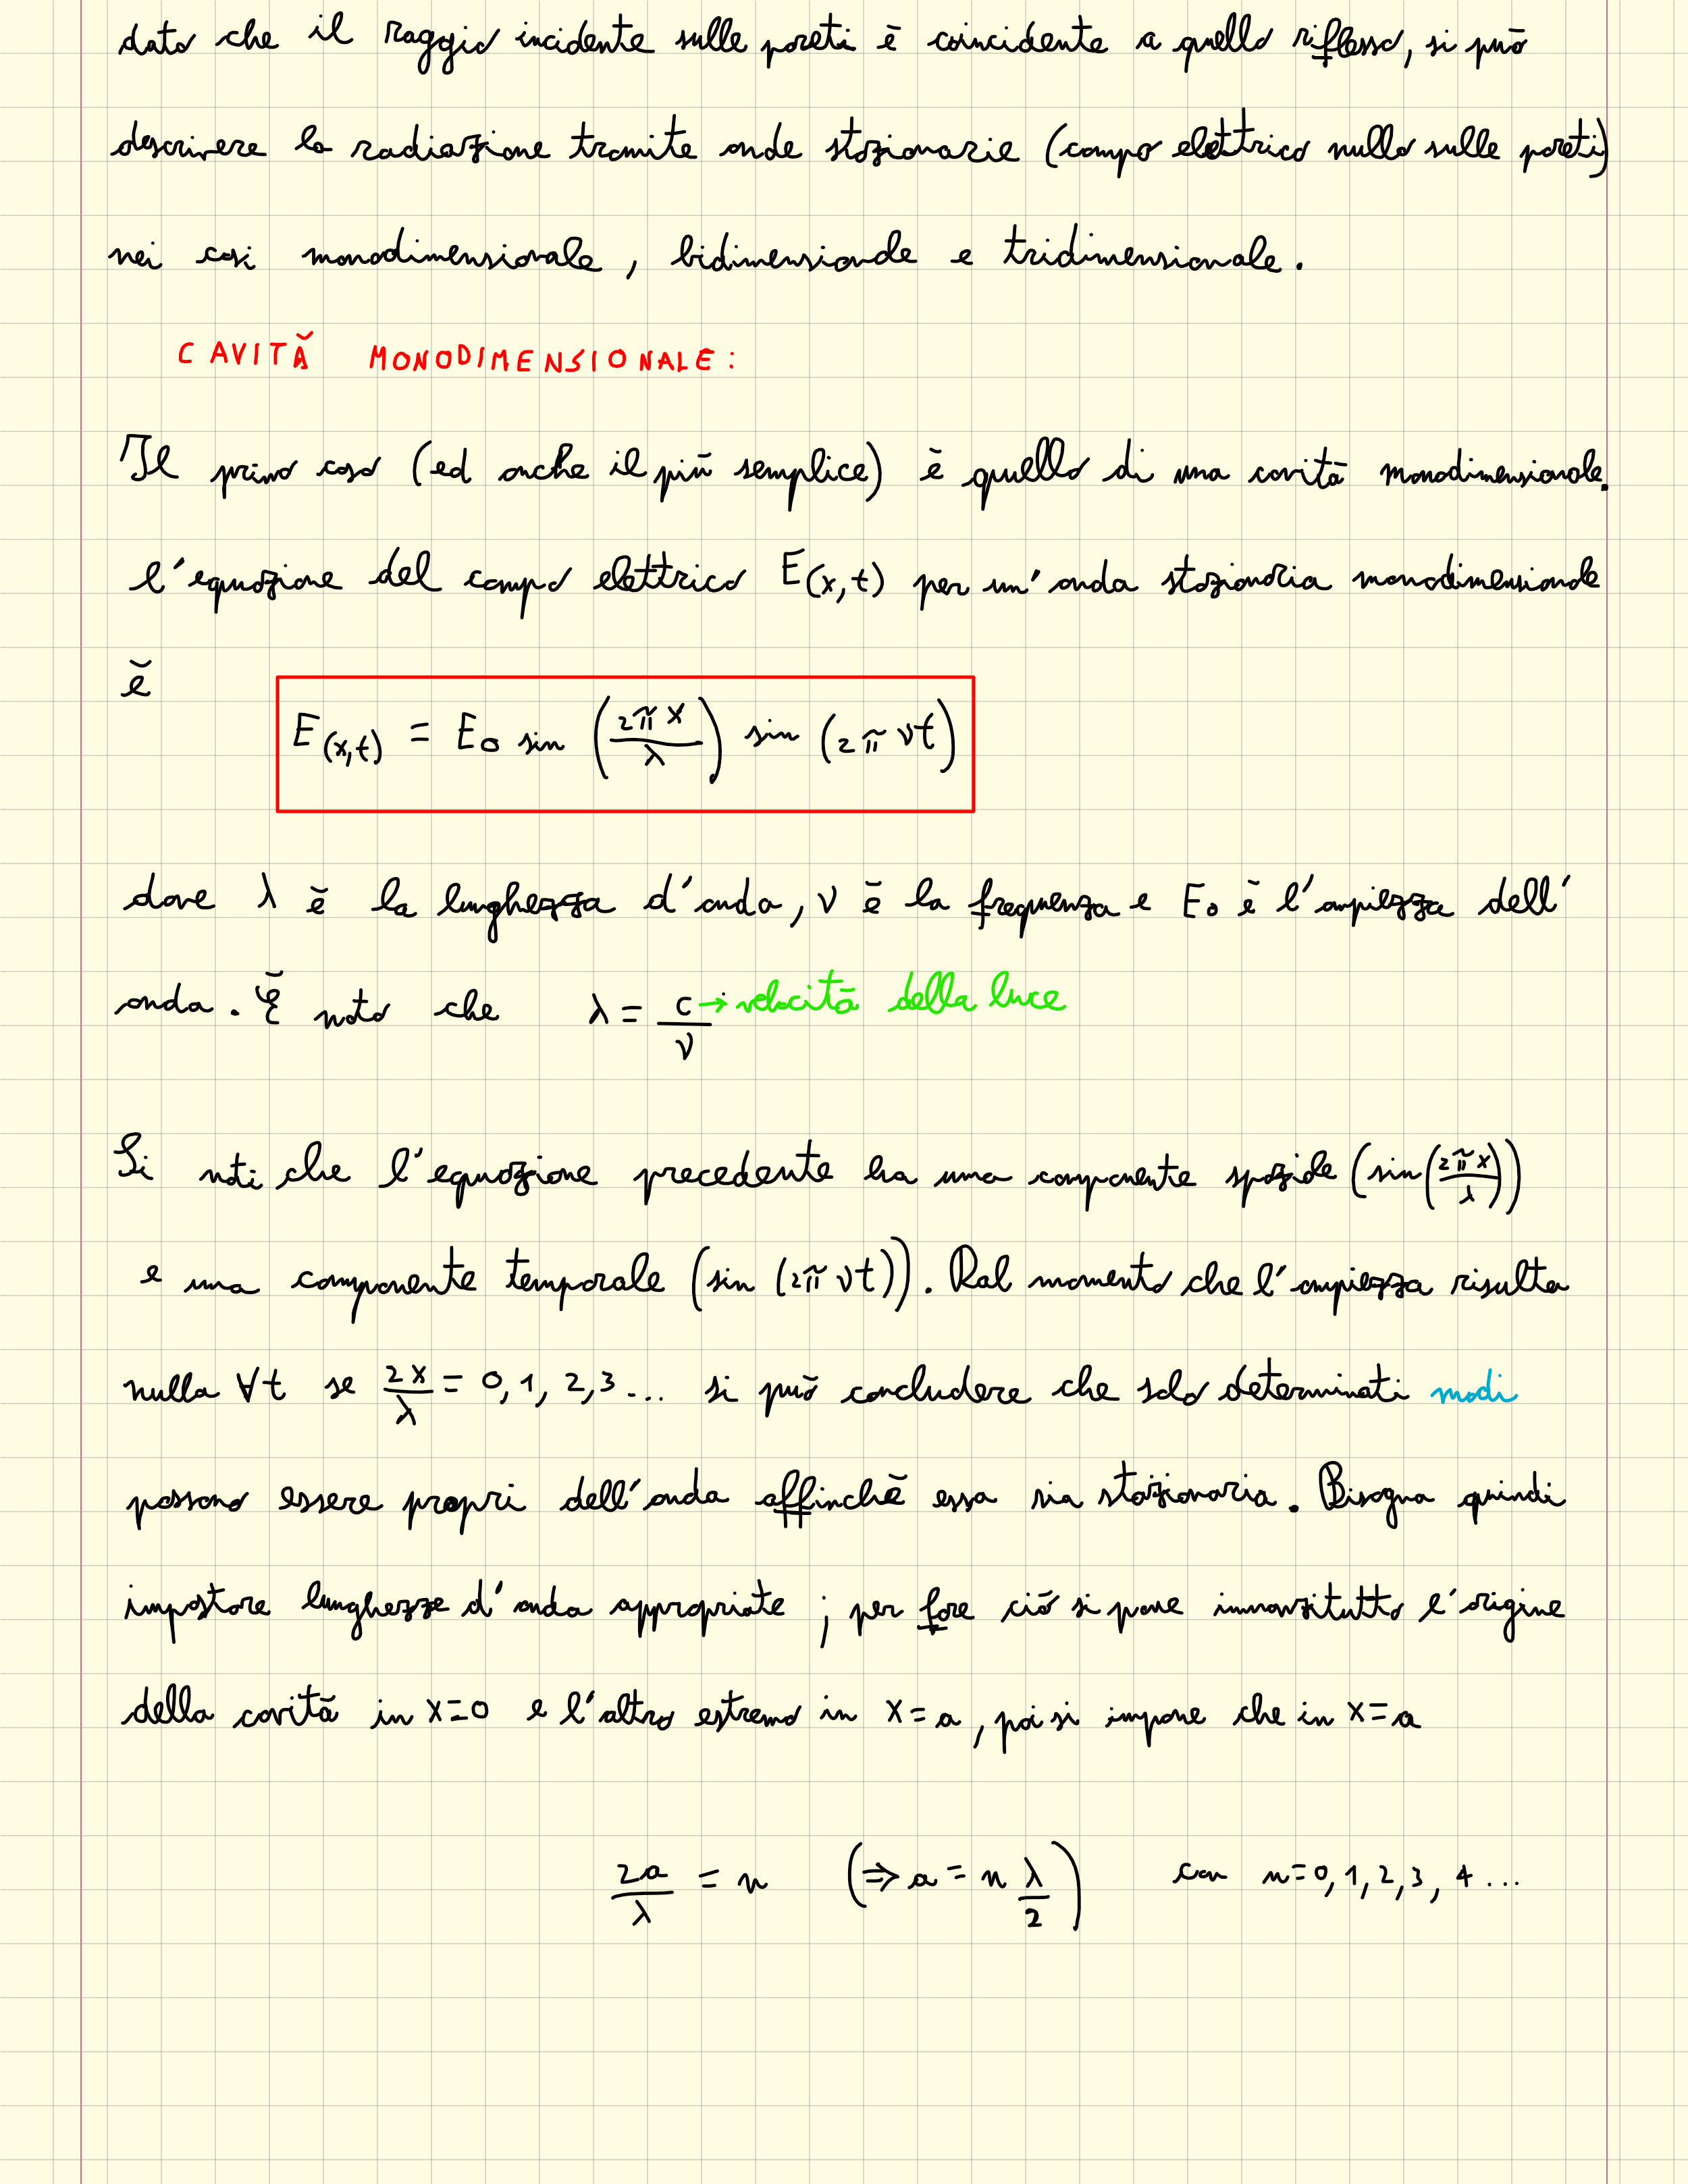 dato che il raggio incidente sulle pareti è coincidente a quello riflesso, si può
descrivere la radiazione tramite onde stazionarie (campo elettrico nullo sulle pareti)
nei casi monodimensionale, bidimensionale e tridimensionale.
CAVITÀ MONODIMENSIONALE:
Il primo caso (ed anche il più semplice) è quello di una cavità monodimensionale.
l'equazione del campo elettrico E(x,t) per un'onda stazionaria monodimensionale
è
E(x,t) = E₀ sin (2πx/λ) sin (2πνt)
dove λ è la lunghezza d'onda, ν è la frequenza e E₀ è l'ampiezza dell'
onda. È noto che λ = c/ν → velocità della luce
Si noti che l'equazione precedente ha una componente spaziale (sin(2πx/λ))
e una componente temporale (sin (2πνt)). Dal momento che l'ampiezza risulta
nulla ∀t se 2x/λ = 0, 1, 2, 3... si può concludere che solo determinati modi
possono essere propri dell'onda affinchè essa sia stazionaria. Bisogna quindi
impostare lunghezze d'onda appropriate; per fare ciò si pone innanzitutto l'origine
della cavità in x=0 e l'altro estremo in x=a, poi si impone che in x=a
2a/λ = n (⇒ a = n λ/2) con n=0, 1, 2, 3, 4...